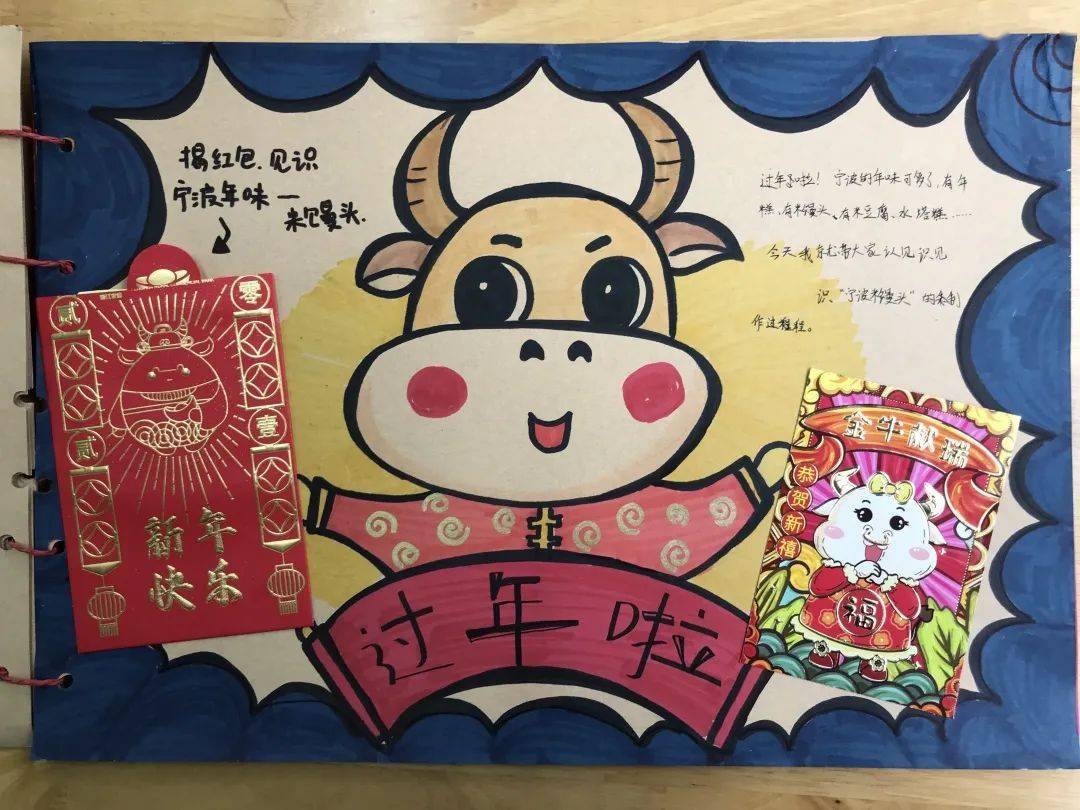 揭红包，见识
宁波年味—
米馒头.
过年了啦！宁波的年味可多了,有年
糕、有米馒头、有米豆腐、水塔糕……
今天我就带大家认见识见
识“宁波米馒头”的制
作过程。
贰 零
贰 壹
新年
快乐
金牛献瑞
恭贺新禧
福
过年啦